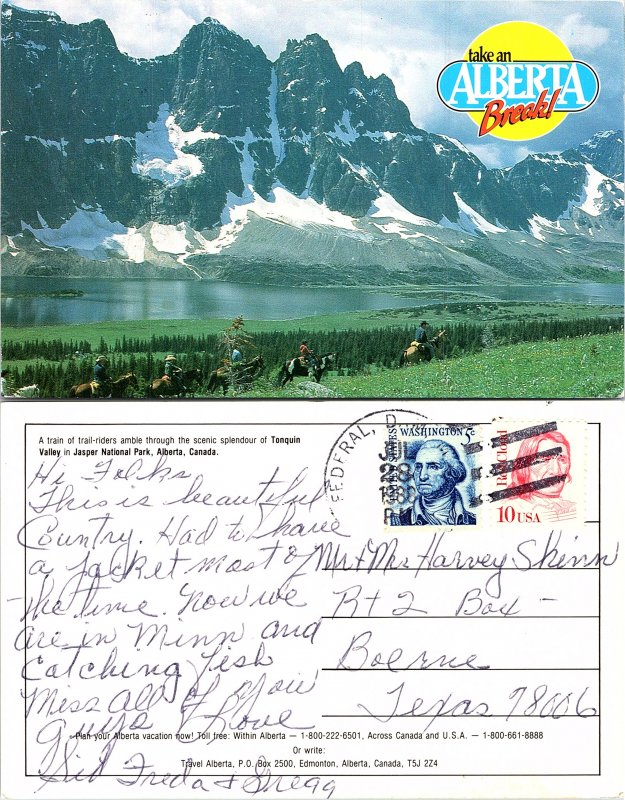 take an
ALBERTA
Break!
A train of trail-riders amble through the scenic splendour of Tonquin
Valley in Jasper National Park, Alberta, Canada.
Hi Folks
This is beautiful
Country. Had to have
a Jacket most of
the time. Now we
are in Minn and
Catching Fish
Miss All of you
Guys Love
Sid Freda & Gregg
FEDERAL,
WASHINGTON 5c
Red Cloud
10 USA
Mr & Mrs Harvey Skinn
Rt 2 Box -
Boerne
Texas 78006
Plan your Alberta vacation now! Toll free: Within Alberta — 1-800-222-6501, Across Canada and U.S.A. — 1-800-661-8888
Or write:
Travel Alberta, P.O. Box 2500, Edmonton, Alberta, Canada, T5J 2Z4